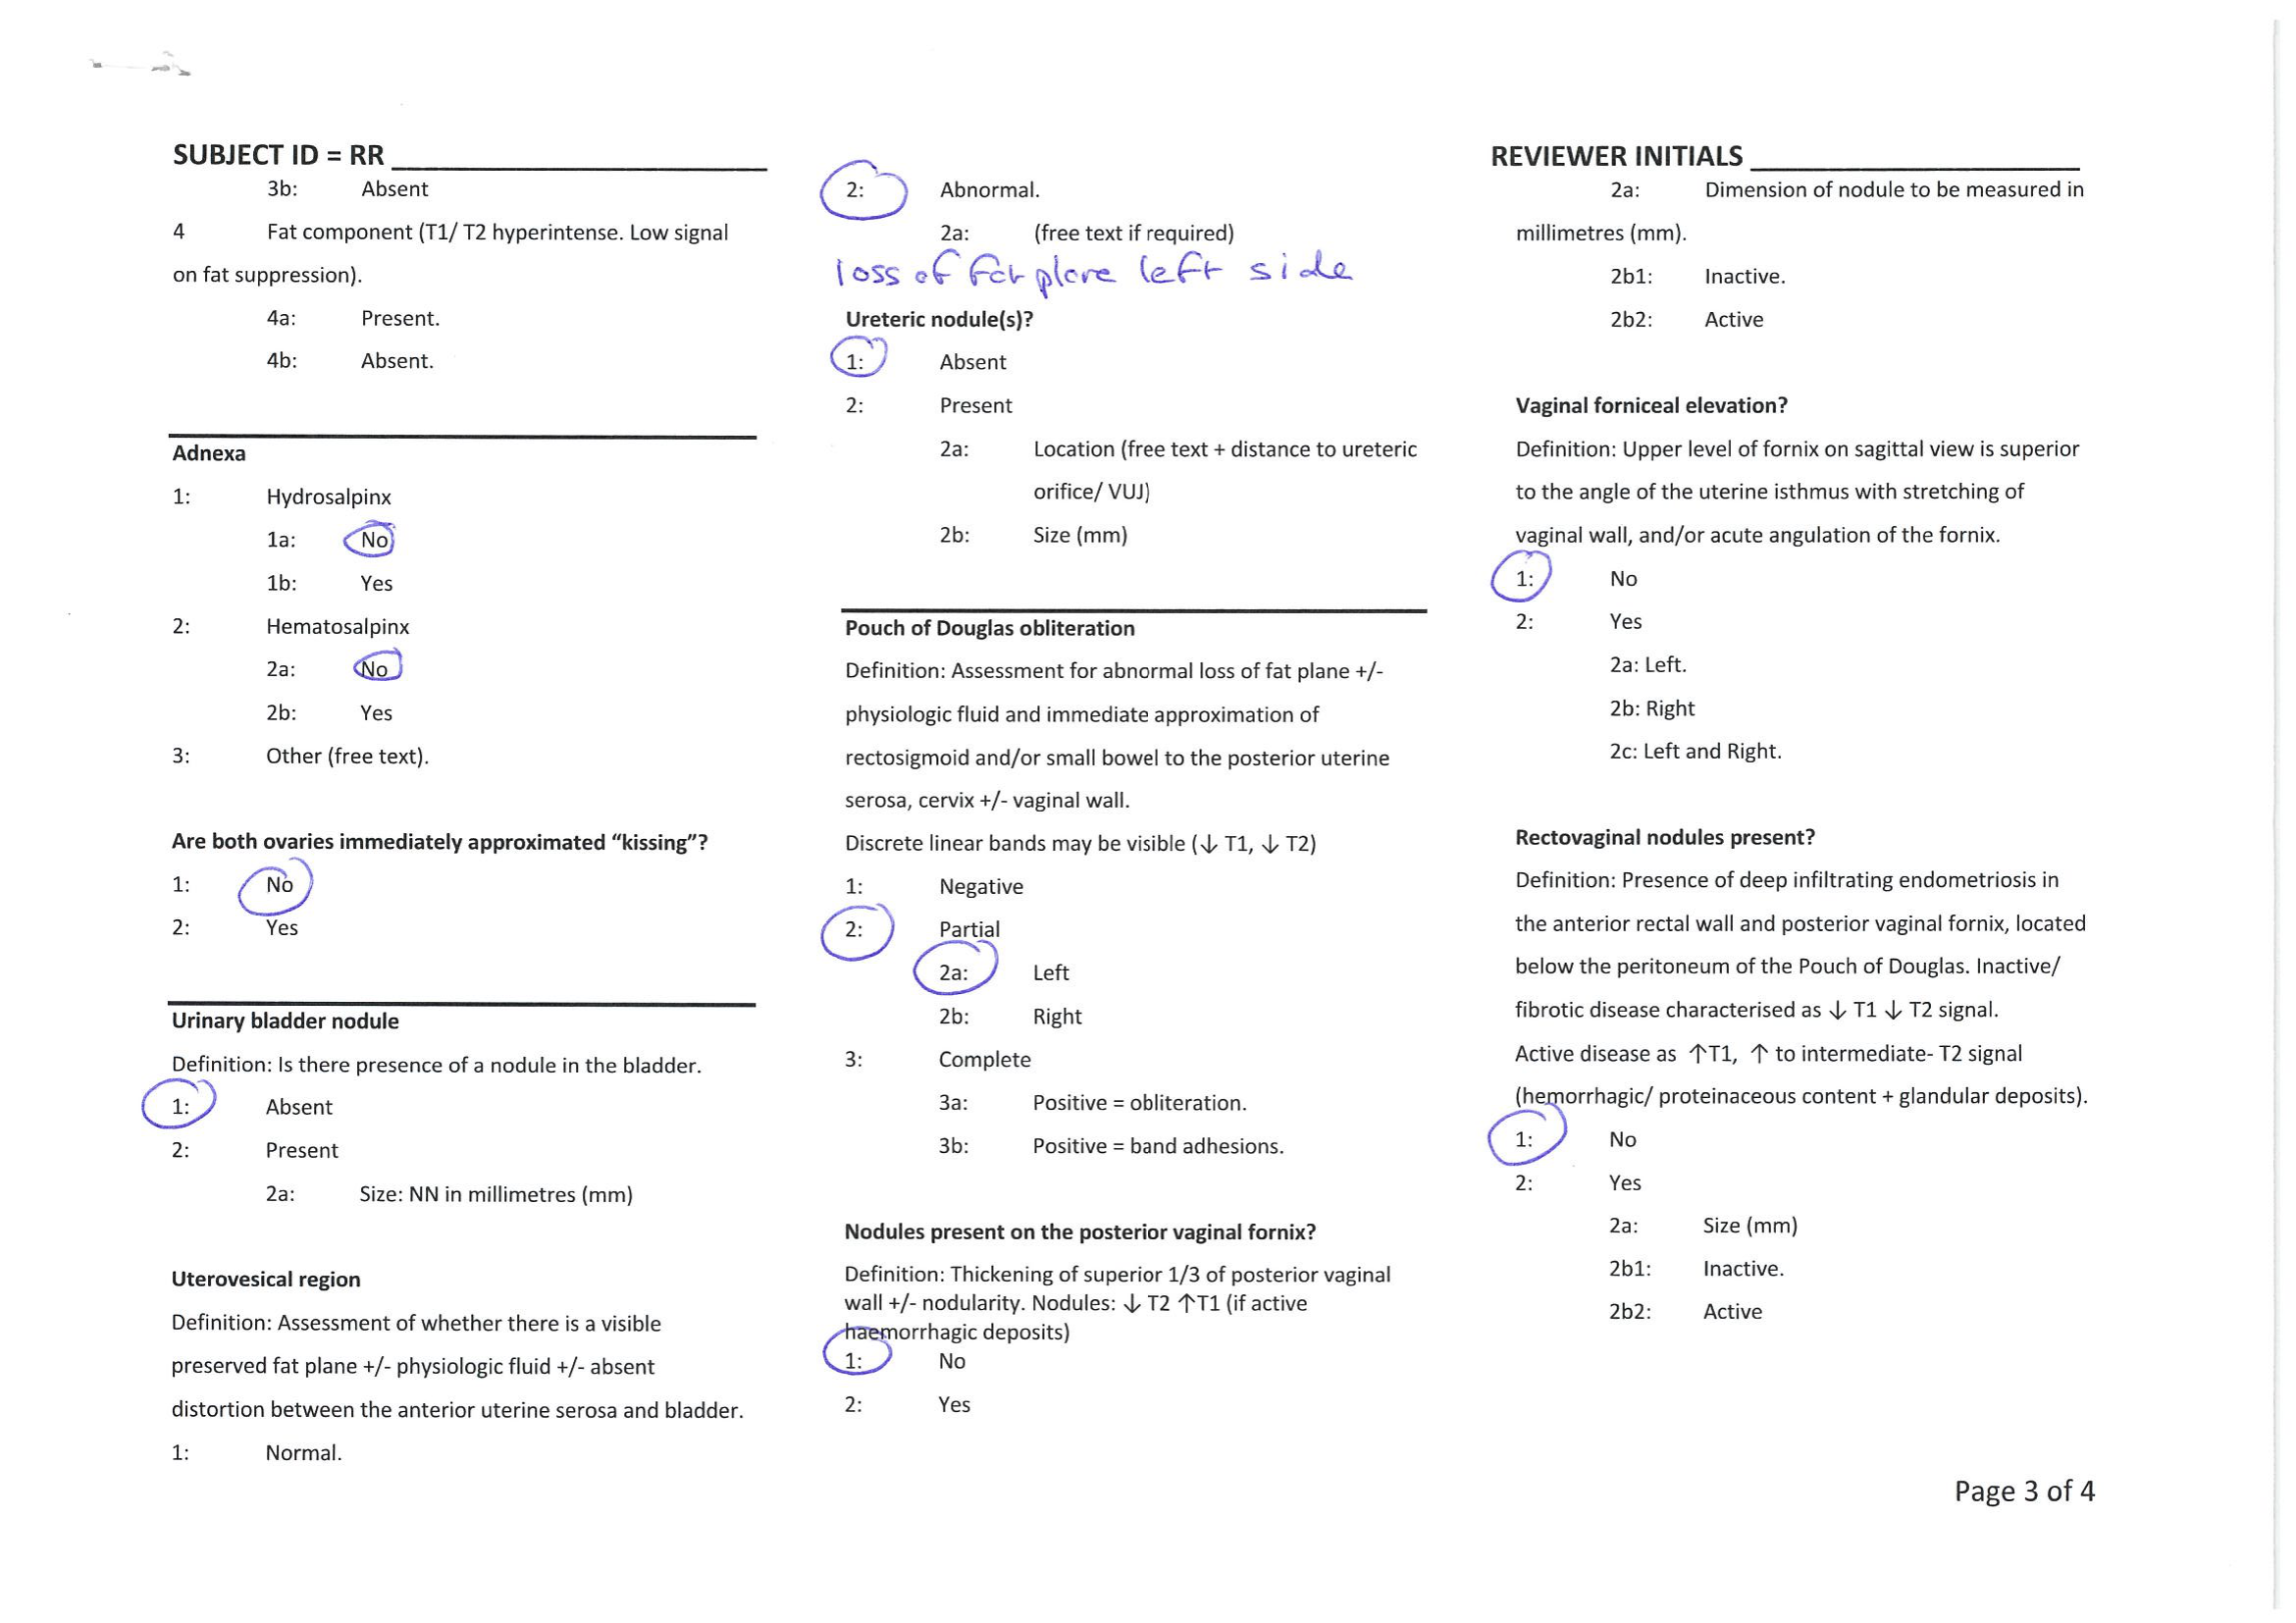 SUBJECT ID = RR
3b: Absent
4 Fat component (T1/ T2 hyperintense. Low signal
on fat suppression).
4a: Present.
4b: Absent.
Adnexa
1: Hydrosalpinx
1a: No
1b: Yes
2: Hematosalpinx
2a: No
2b: Yes
3: Other (free text).
Are both ovaries immediately approximated “kissing”?
1: No
2: Yes
Urinary bladder nodule
Definition: Is there presence of a nodule in the bladder.
1: Absent
2: Present
2a: Size: NN in millimetres (mm)
Uterovesical region
Definition: Assessment of whether there is a visible
preserved fat plane +/- physiologic fluid +/- absent
distortion between the anterior uterine serosa and bladder.
1: Normal.
2: Abnormal.
2a: (free text if required)
loss of fat plane left side
Ureteric nodule(s)?
1: Absent
2: Present
2a: Location (free text + distance to ureteric
orifice/ VUJ)
2b: Size (mm)
Pouch of Douglas obliteration
Definition: Assessment for abnormal loss of fat plane +/-
physiologic fluid and immediate approximation of
rectosigmoid and/or small bowel to the posterior uterine
serosa, cervix +/- vaginal wall.
Discrete linear bands may be visible (↓ T1, ↓ T2)
1: Negative
2: Partial
2a: Left
2b: Right
3: Complete
3a: Positive = obliteration.
3b: Positive = band adhesions.
Nodules present on the posterior vaginal fornix?
Definition: Thickening of superior 1/3 of posterior vaginal
wall +/- nodularity. Nodules: ↓ T2 ↑T1 (if active
haemorrhagic deposits)
1: No
2: Yes
REVIEWER INITIALS
2a: Dimension of nodule to be measured in
millimetres (mm).
2b1: Inactive.
2b2: Active
Vaginal forniceal elevation?
Definition: Upper level of fornix on sagittal view is superior
to the angle of the uterine isthmus with stretching of
vaginal wall, and/or acute angulation of the fornix.
1: No
2: Yes
2a: Left.
2b: Right
2c: Left and Right.
Rectovaginal nodules present?
Definition: Presence of deep infiltrating endometriosis in
the anterior rectal wall and posterior vaginal fornix, located
below the peritoneum of the Pouch of Douglas. Inactive/
fibrotic disease characterised as ↓ T1 ↓ T2 signal.
Active disease as ↑T1, ↑ to intermediate- T2 signal
(hemorrhagic/ proteinaceous content + glandular deposits).
1: No
2: Yes
2a: Size (mm)
2b1: Inactive.
2b2: Active
Page 3 of 4